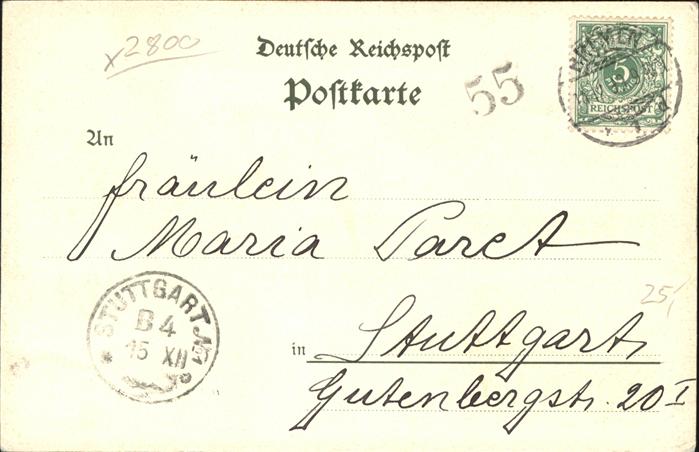 x2800
Deutsche Reichspost
Postkarte
55
5
PFENNIG
REICHSPOST
An
Fräulein
Maria Paret
STUTTGART No 1
B 4
15 XII
25,
in Stuttgart,
Gutenbergstr. 20 I